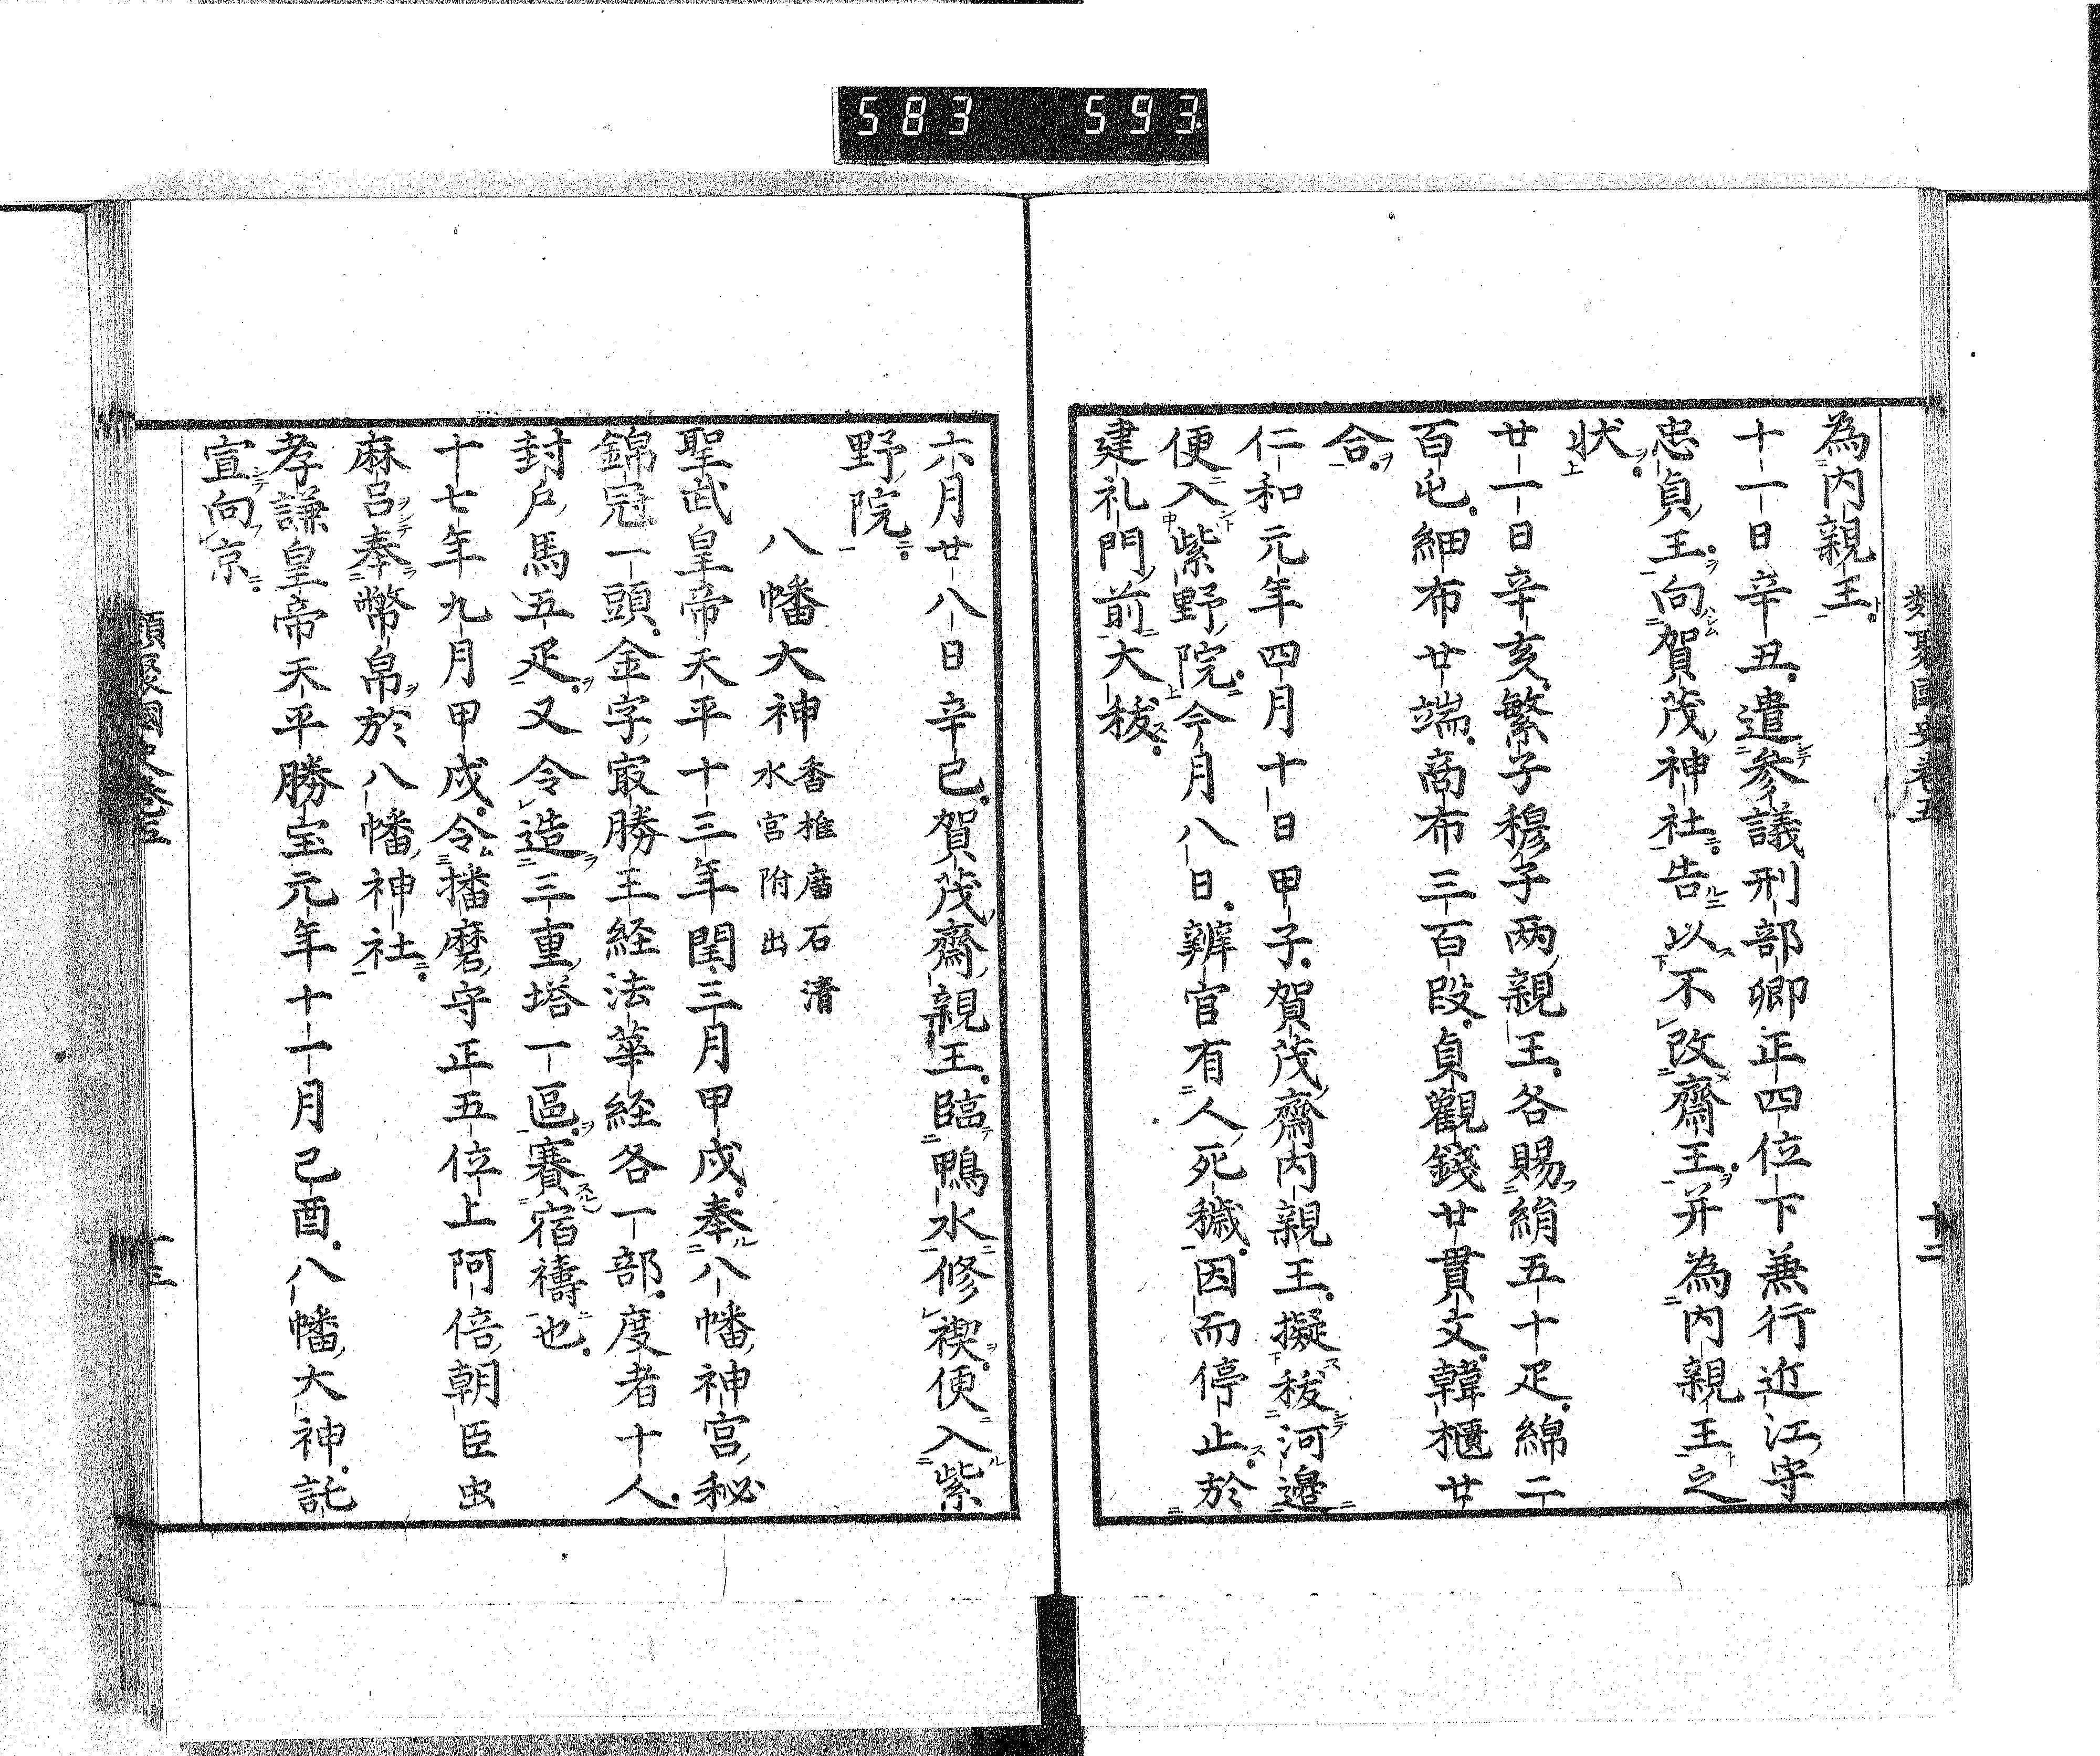 583 593
類聚國史卷五 十二
為内親王
十一日辛丑遣参議刑部卿正四位下兼行近江守
忠貞王向賀茂神社告以不改齋王并為内親王之
状
廿一日辛亥繁子穆子两親王各賜絹五十疋綿二
百屯細布廿端商布三百段貞觀錢廿貫文韓櫃廿
合
仁和元年四月十日甲子賀茂齋内親王擬秡河邊
便入紫野院今月八日辨官有人死穢因而停止於
建礼門前大秡
六月廿八日辛巳賀茂齋親王臨鴨水修禊便入紫
野院
八幡大神 香椎廟石清
水宮附出
聖武皇帝天平十三年閏三月甲戌奉八幡神宮秘
錦冠一頭金字㝡勝王経法華経各一部度者十人
封戸馬五疋又令造三重塔一區賽宿禱也
十七年九月甲戌令播磨守正五位上阿倍朝臣虫
麻呂奉幣帛於八幡神社
孝謙皇帝天平勝宝元年十一月己酉八幡大神託
宣向京
類聚國史卷五 十三